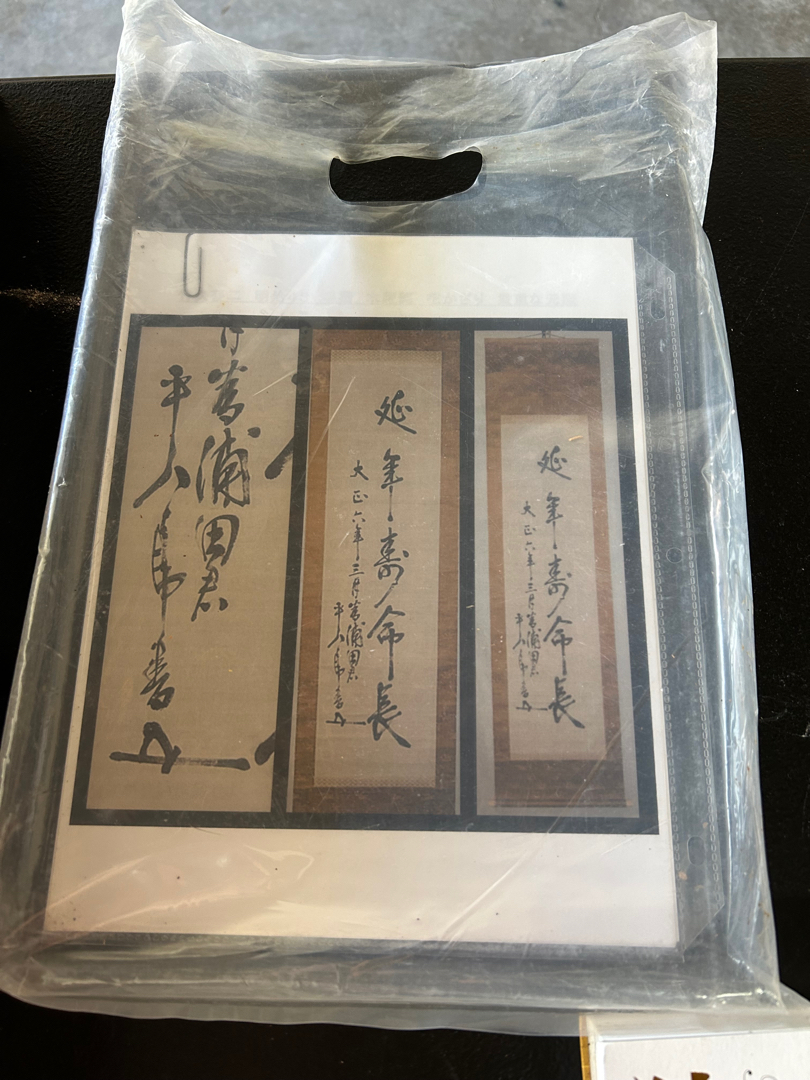 月 浦田君
平八郎書
延年寿命長
大正六年三月 浦田君
平八郎書
延年寿命長
大正六年三月 浦田君
平八郎書